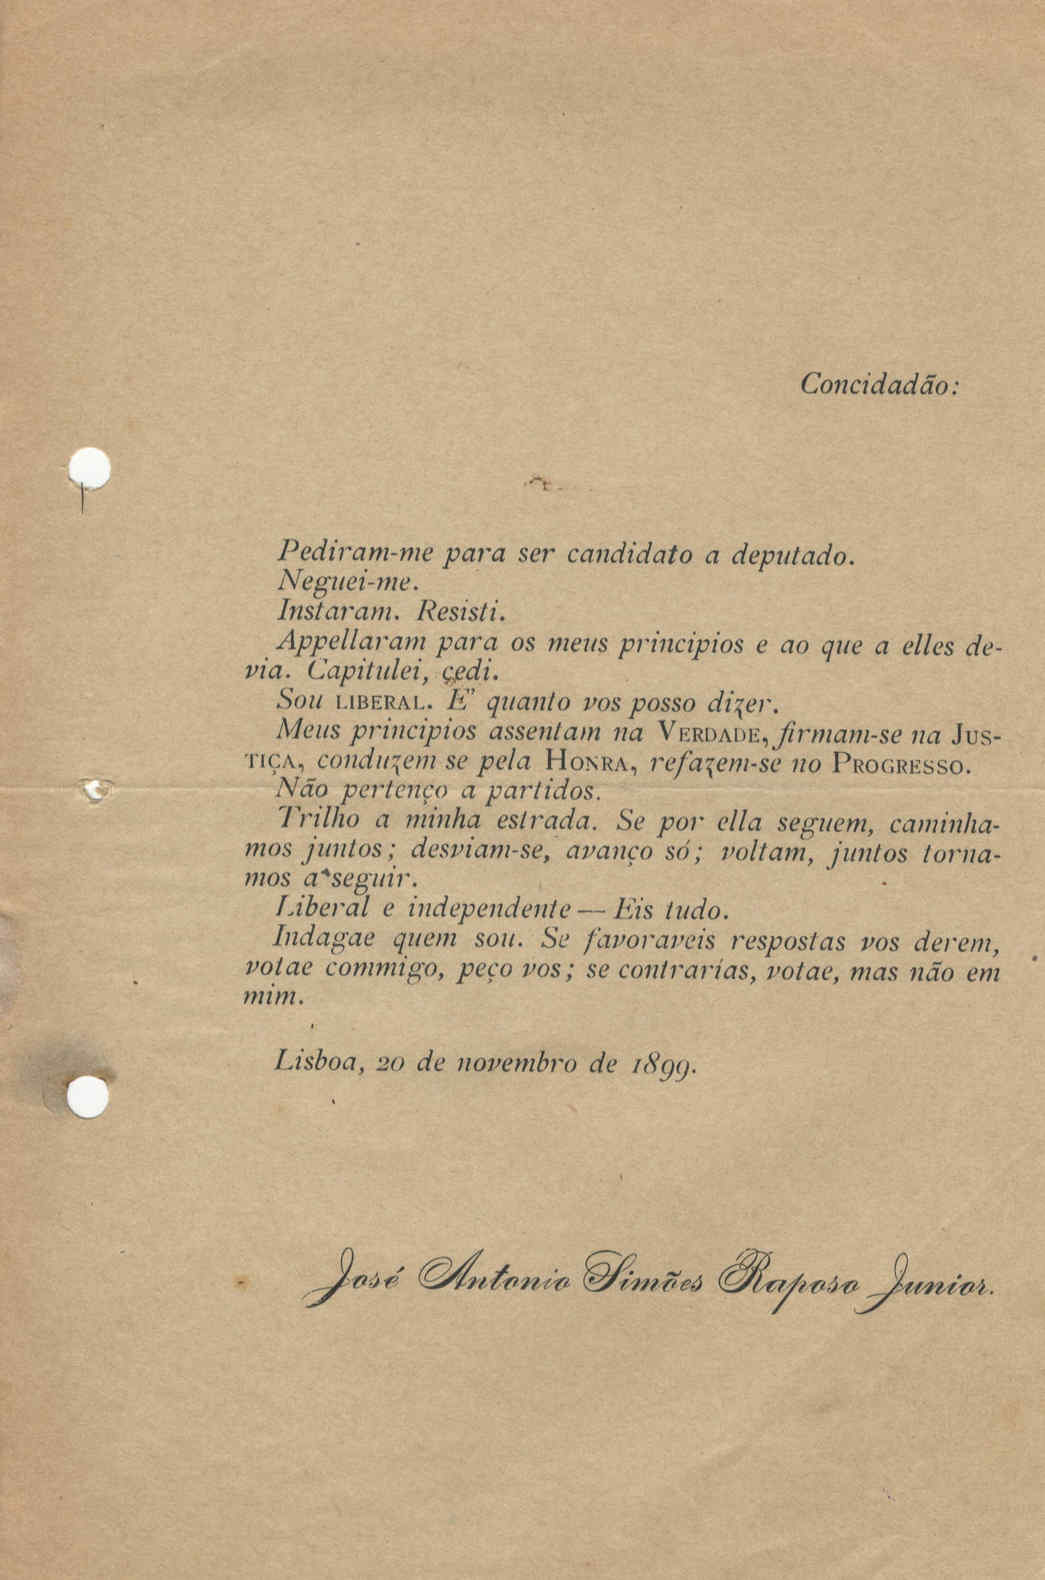 Concidadão:
Pediram-me para ser candidato a deputado.
Neguei-me.
Instaram. Resisti.
Appellaram para os meus principios e ao que a elles de-
via. Capitulei, cedi.
Sou LIBERAL. E" quanto vos posso dizer.
Meus principios assentam na VERDADE, firmam-se na JUS-
TIÇA, conduzem se pela HONRA, refazem-se no PROGRESSO.
Não pertenço a partidos.
Trilho a minha estrada. Se por ella seguem, caminha-
mos juntos; desviam-se, avanço só; voltam, juntos torna-
mos a seguir.
Liberal e independente — Eis tudo.
Indagae quem sou. Se favoraveis respostas vos derem,
votae commigo, peço vos; se contrarías, votae, mas não em
mim.
Lisboa, 20 de novembro de 1899.
José Antonio Simões Raposo Junior.